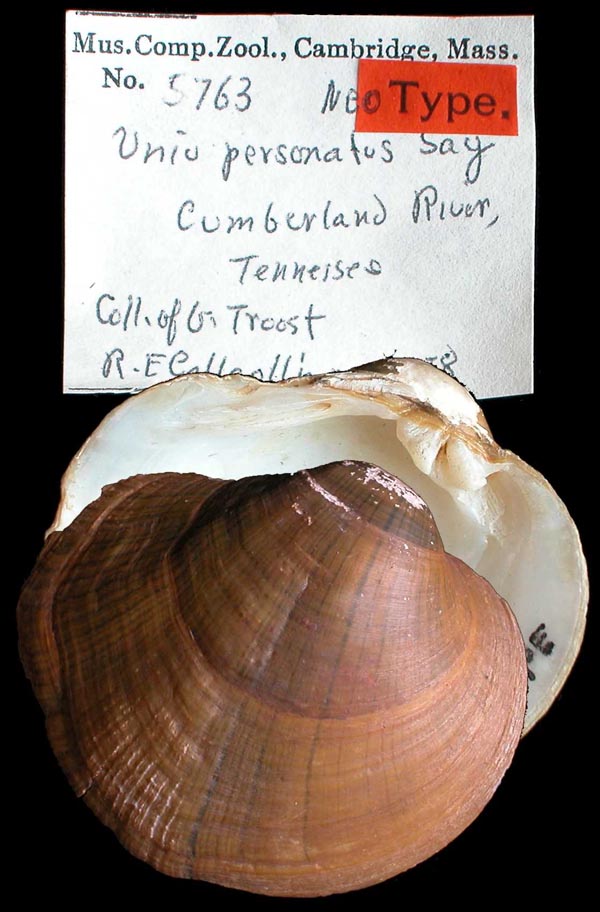 Mus.Comp.Zool., Cambridge, Mass.
No. 5763 Neo Type.
Unio personatus Say
Cumberland River,
Tennessee
Coll. of G. Troost
R. E